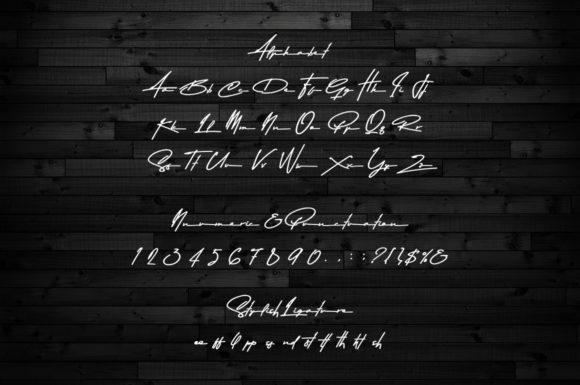 Alphabet
Aa Bb Cc Dd Ee Ff Gg Hh Ii Jj
Kk Ll Mm Nn Oo Pp Qq Rr
Ss Tt Uu Vv Ww Xx Yy Zz
Numeric & Punctuation
1 2 3 4 5 6 7 8 9 0 . , : ; ? ! { } $ % &
Stylish Ligature
ee ff ll pp ss nd st tf th ht ch